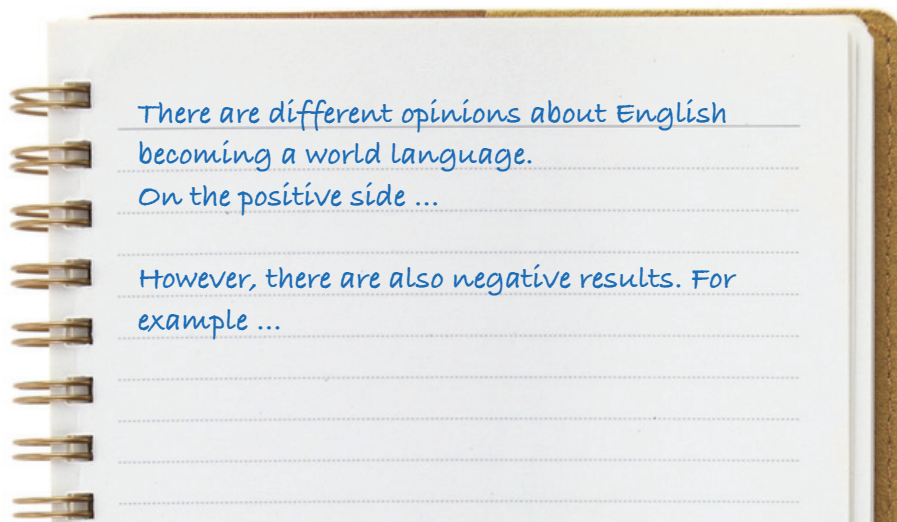 There are different opinions about English
becoming a world language.
On the positive side ...
However, there are also negative results. For
example ...